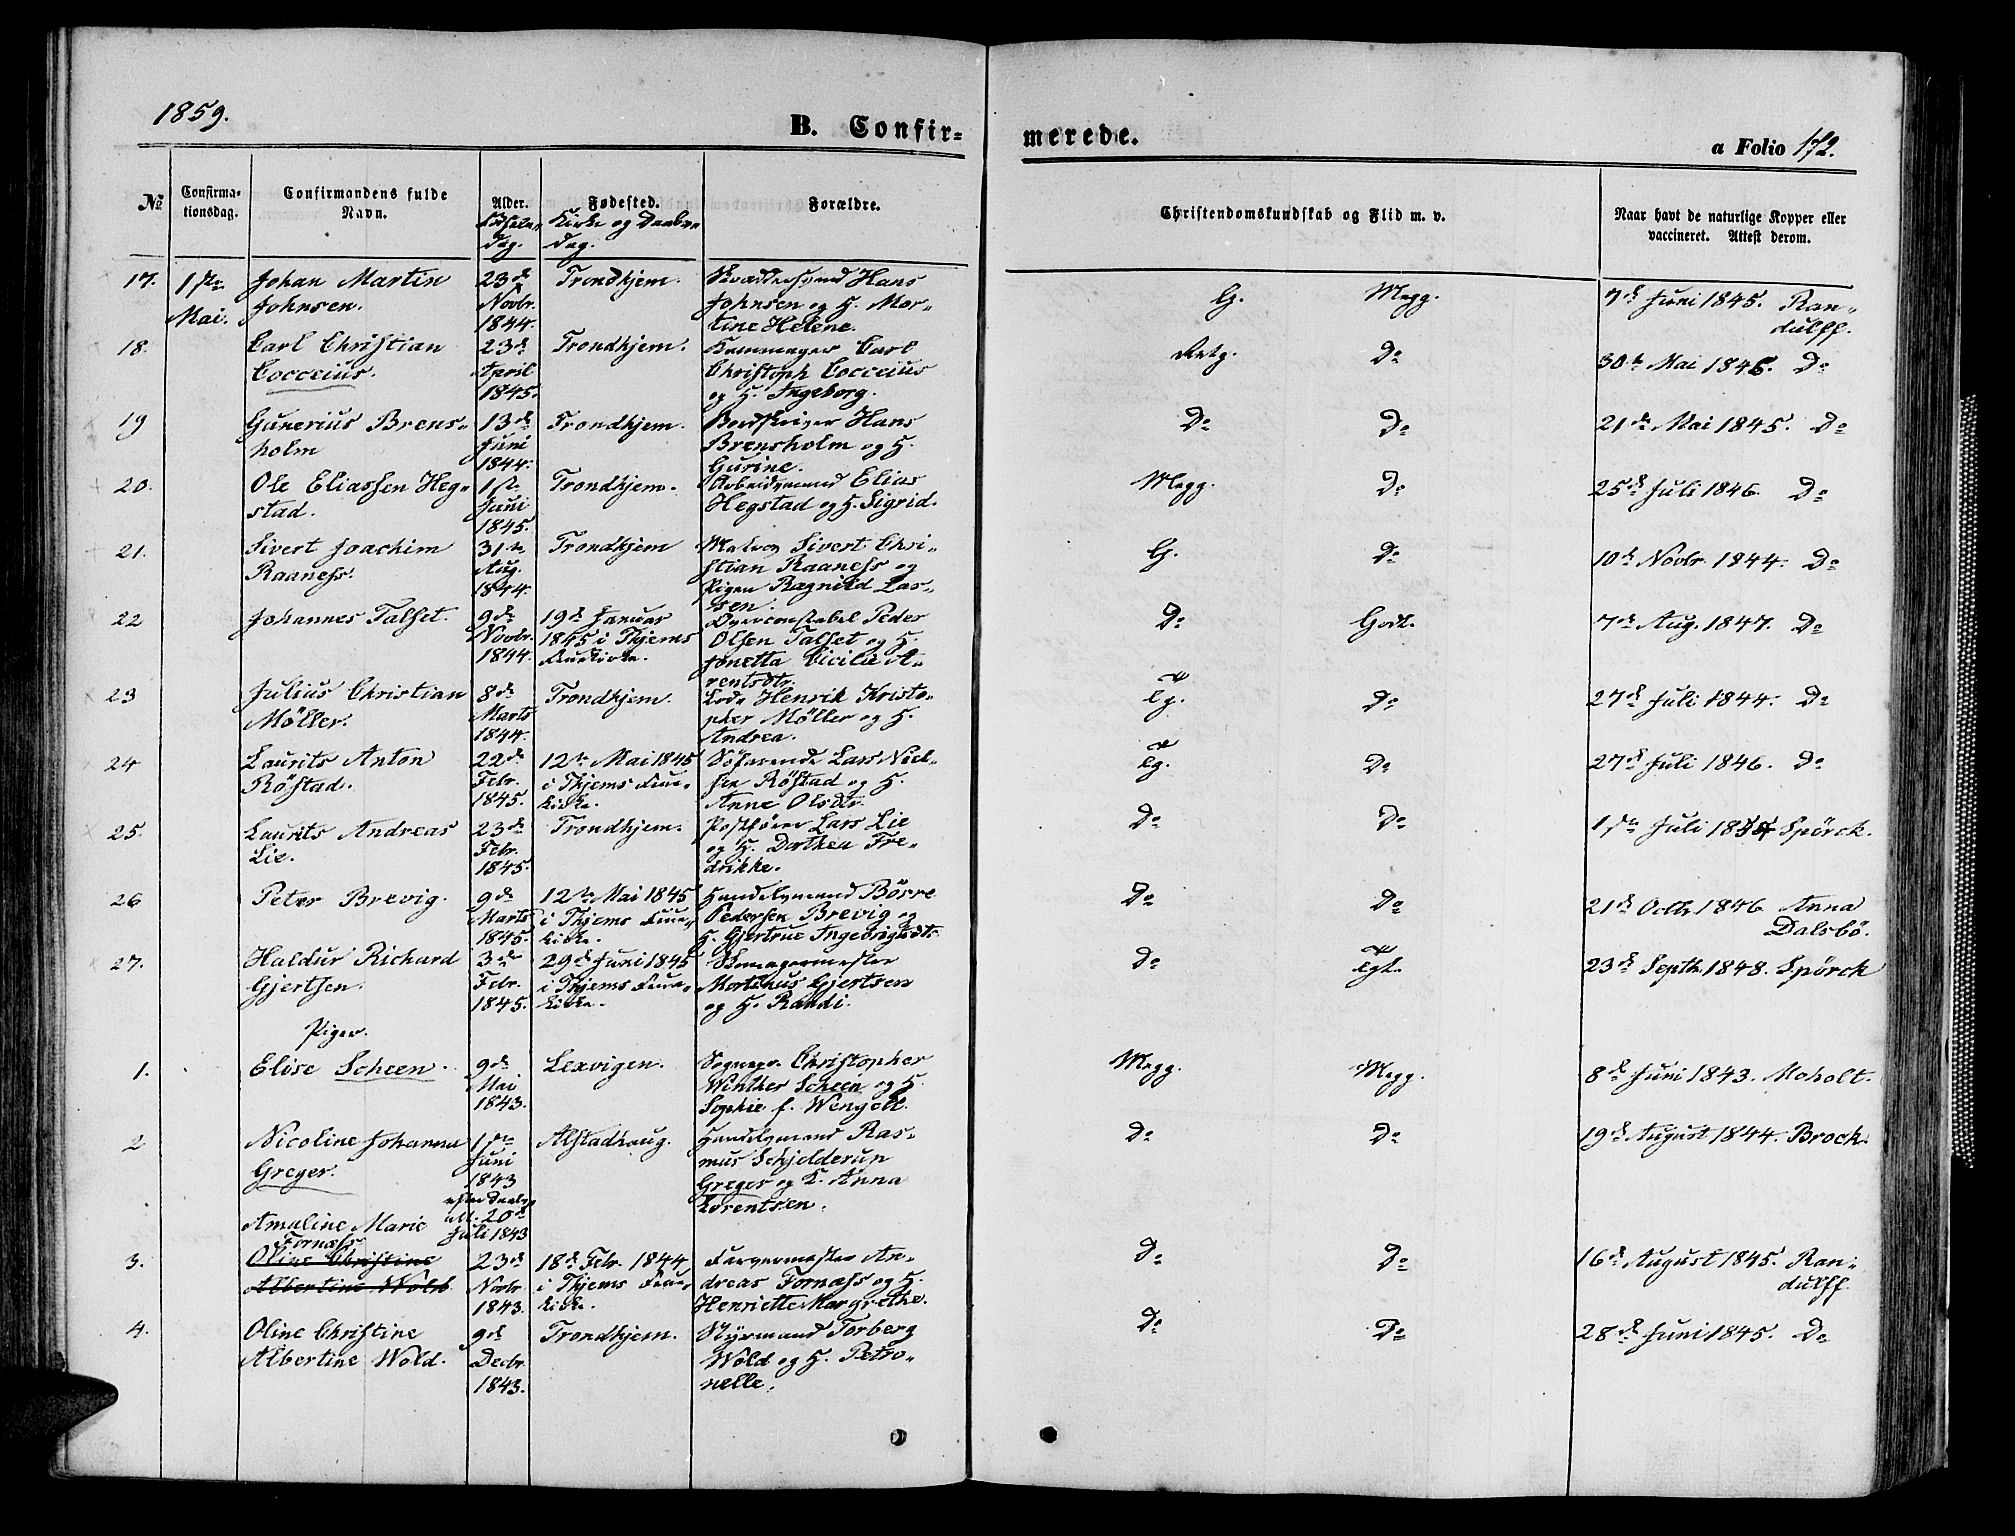 1859.
B. Confir-
merede.
a Folio 172.
No
Confirma-
tionsdag.
Confirmandens fulde
Navn.
Alder.
Fødselsdag.
Fødested.
Kirke og Daabs-
dag.
Forældre.
Christendomskundskab og Flid m. v.
Naar havt de naturlige Kopper eller
vaccineret. Attest derom.
17. 1ste Mai. Johan Martin Johnsen. 23de Novbr. 1844. Trondhjem. Hans Johnsen og H. Martine Helene. G. Megg. 7de Juni 1845. Randulff.
18. Carl Christian Cocceius. 23de April 1845. Trondhjem. Kammager Carl Christoph Cocceius og H. Ingeborg. Do 30te Mai 1846. Do
19 Gunerius Brensholm 13de Juni 1844. Trondhjem. Hans Brensholm og H. Gurine. Do Do 21de Mai 1845. Do
20. Ole Eliassen Hegstad. 1ste Juni 1845. Trondhjem. Arbeidsmand Elias Hegstad og H. Sigrid. Megg. Do 25de Juli 1846. Do
21. Sivert Joachim Raaness. 31te Aug. 1844. Trondhjem Sivert Christian Raaness og Pigen Ragnild Larsen. G. Do 10de Novbr. 1844. Do
22 Johannes Talset. 9de Novbr. 1844. 19de Januar 1845 i Thjems Fruekirke. Peder Olsen Talset og H. Jonetta Cicilie Arentsdtr. Do Godt. 7de Aug. 1847. Do
23 Julius Christian Møller. 8de Marts 1844. Trondhjem. Lods Henrik Kristopher Møller og H. Andrea. Do 27de Juli 1844. Do
24 Laurits Anton Røstad. 22de Febr. 1845. 12te Mai 1845 i Thjems Fruekirke. Søfarende Lars Nielsen Røstad og H. Anne Olsdtr. Do 27de Juli 1846. Do
25. Laurits Andreas Lie. 23de Febr. 1845. Trondhjem. Postfører Lars Lie og H. Dorthea Fredrikke. Do Do 1ste Juli Spörck.
26 Peter Brevig. 9de Marts 1845. 12te Mai 1845 i Thjems Fruekirke. Handelsmand Börre Pedersen Brevig og H. Gjertrue Ingebrigtsdtr. Do Do 21de Octbr. 1846 Anna Dalsbö.
27. Haldur Richard Gjertsen. 3de Febr. 1845. 29de Juni 1845 i Thjems Fruekirke. Skomagermester Martinus Gjertsen og H. Randi. Do 23de Septb. 1848. Spörck
Piger.
1. Elise Scheen. 9de Mai 1843. Lexvigen. Sognepr. Christopher Winther Scheen og H. Sophie f. Wengell. Megg. Megg. 8de Juni 1843. Moholt.
2 Nicoline Johanna Greger. 1ste Juni 1843 Alstadhaug. Handelsmand Rasmus Schjelderup Greger og K. Anna Lorentsen. Do Do 19de August 1844. Brock.
20de Juli 1843
Amaline Marie Fornæss
3. Oline Christine Albertine Wold 23de Novbr. 1843. 18de Febr. 1844 i Thjems Fruekirke. Farvermester Andreas Fornæss og H. Henriette Margrethe. Do Do 16de August 1845. Randulff.
4. Oline Christine Albertine Wold. 9de Decbr. 1843. Trondhjem. Styrmand Torberg Wold og H. Petronelle. Do Do 28de Juni 1845. Do